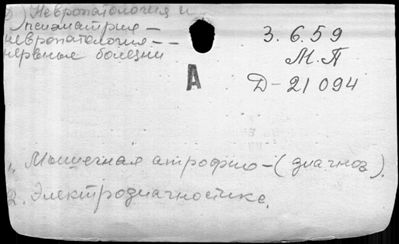 3) Невропатология и
психиатрия —
невропатология — —
нервные болезни
3.6.59
М.П
Д-21094
А
1. Мышечная атрофию - (диагноз).
2. Электродиагностике.